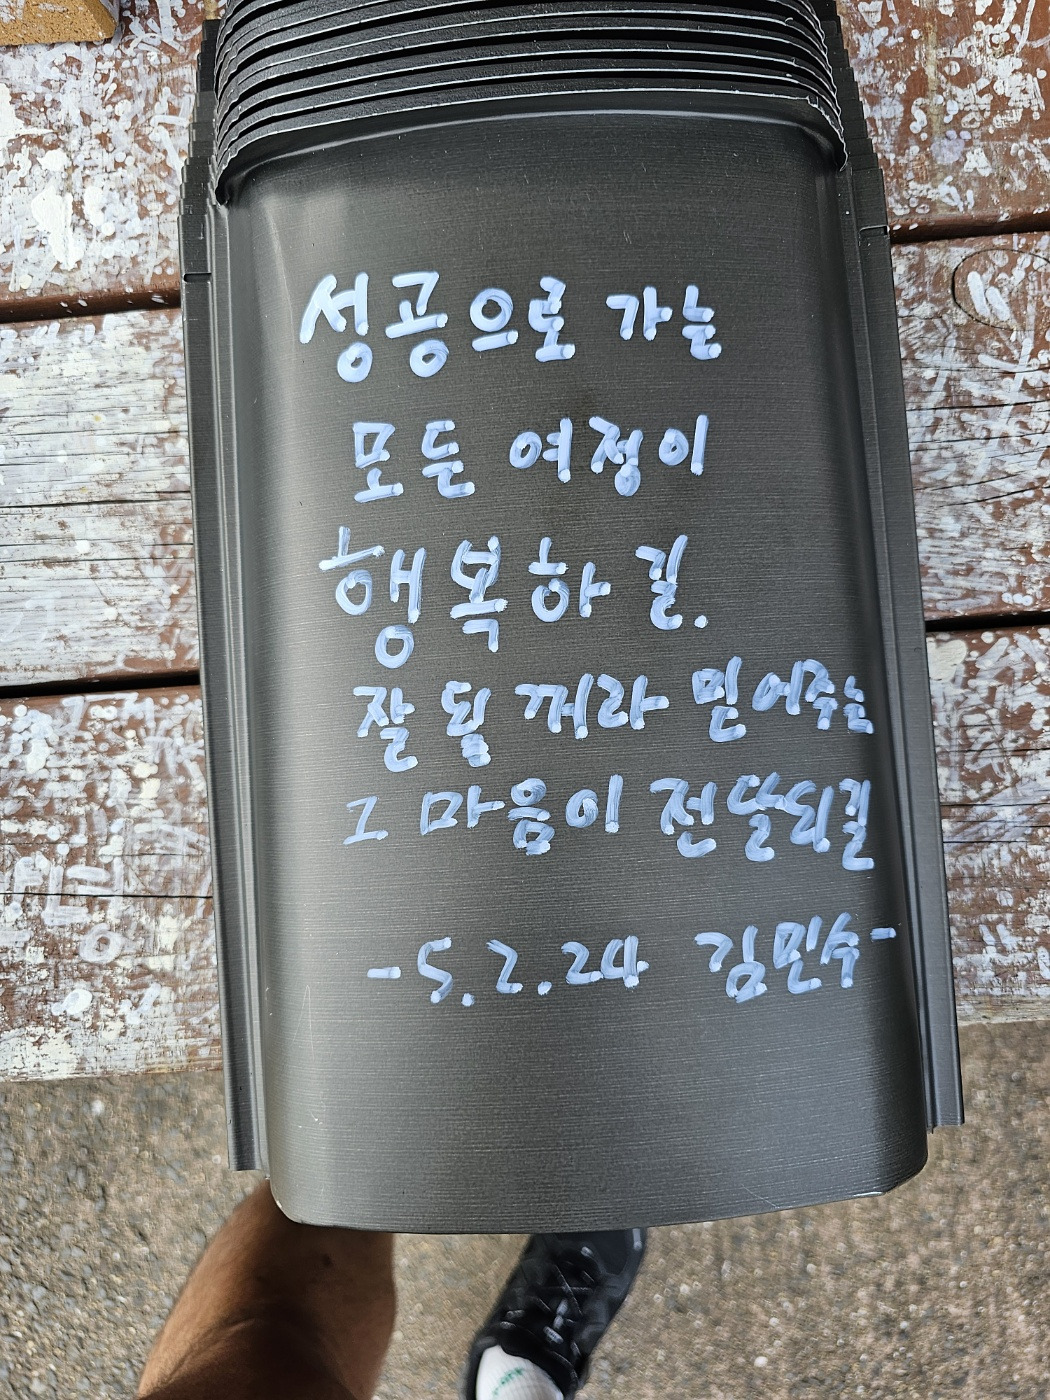 성공으로 가는
모든 여정이
행복하길.
잘 될 꺼라 믿어주는
그 마음이 전달되길
-5.2.24 김민수-